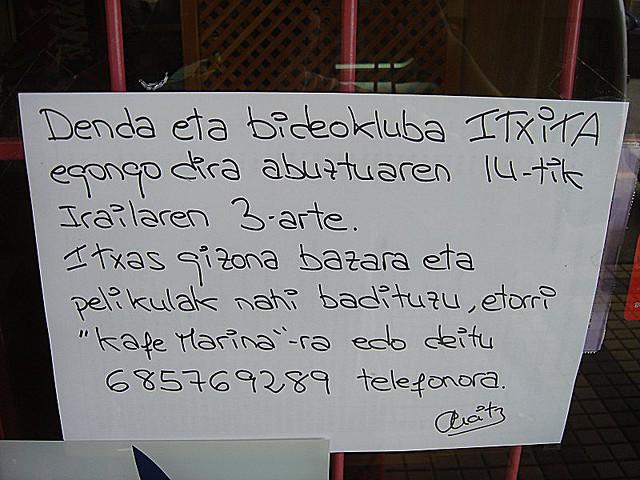 Denda eta bideokluba ITXITA
egongo dira abuztuaren 14-tik
Irailaren 3-arte.
Itxas gizona bazara eta
pelikulak nahi badituzu, etorri
"Kafe Marina"-ra edo deitu
685769289 telefonora.